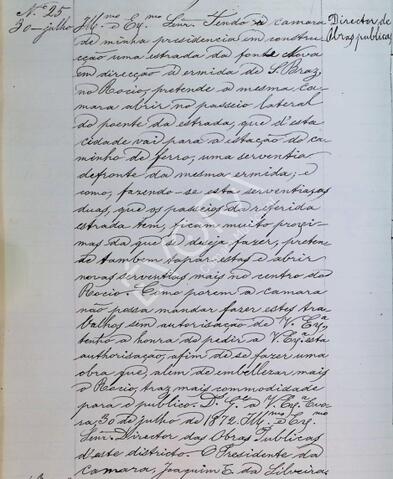 Nº 25
30-julho
Director de
Obras publicas
Ill.mo e Ex.mo Senr. Tendo a camara
de minha presidencia em constru-
cção uma estrada da fonte Nova
em direcção á ermida de S. Braz,
no Rocio, pretende a mesma ca-
mara abrir no passeio lateral
do poente da estrada, que d'esta
cidade vai para a estação do ca-
minho de ferro, uma serventia
defronte da mesma ermida; e
como, fazendo-se esta serventia, as
duas, que os passeios da referida
estrada tem, ficam muito proxi-
mas da que se deseja fazer, preten-
de tambem tapar estas e abrir
novas serventias mais no centro do
Rocio. Como porem a camara
não possa mandar fazer estes tra-
balhos sem autorisação de V. Ex.ª,
tenho a honra de pedir a V. Ex.ª esta
authorisação, afim de se fazer uma
obra que, alem de embellezar mais
o Rocio, traz mais commodidade
para o publico. D. G.e a V. Ex.ª Evo-
ra, 30 de julho de 1872. Ill.mo e Ex.mo
Senr. Director das Obras Publicas
d'este districto. O Presidente da
Camara, Joaquim E. da Silveira